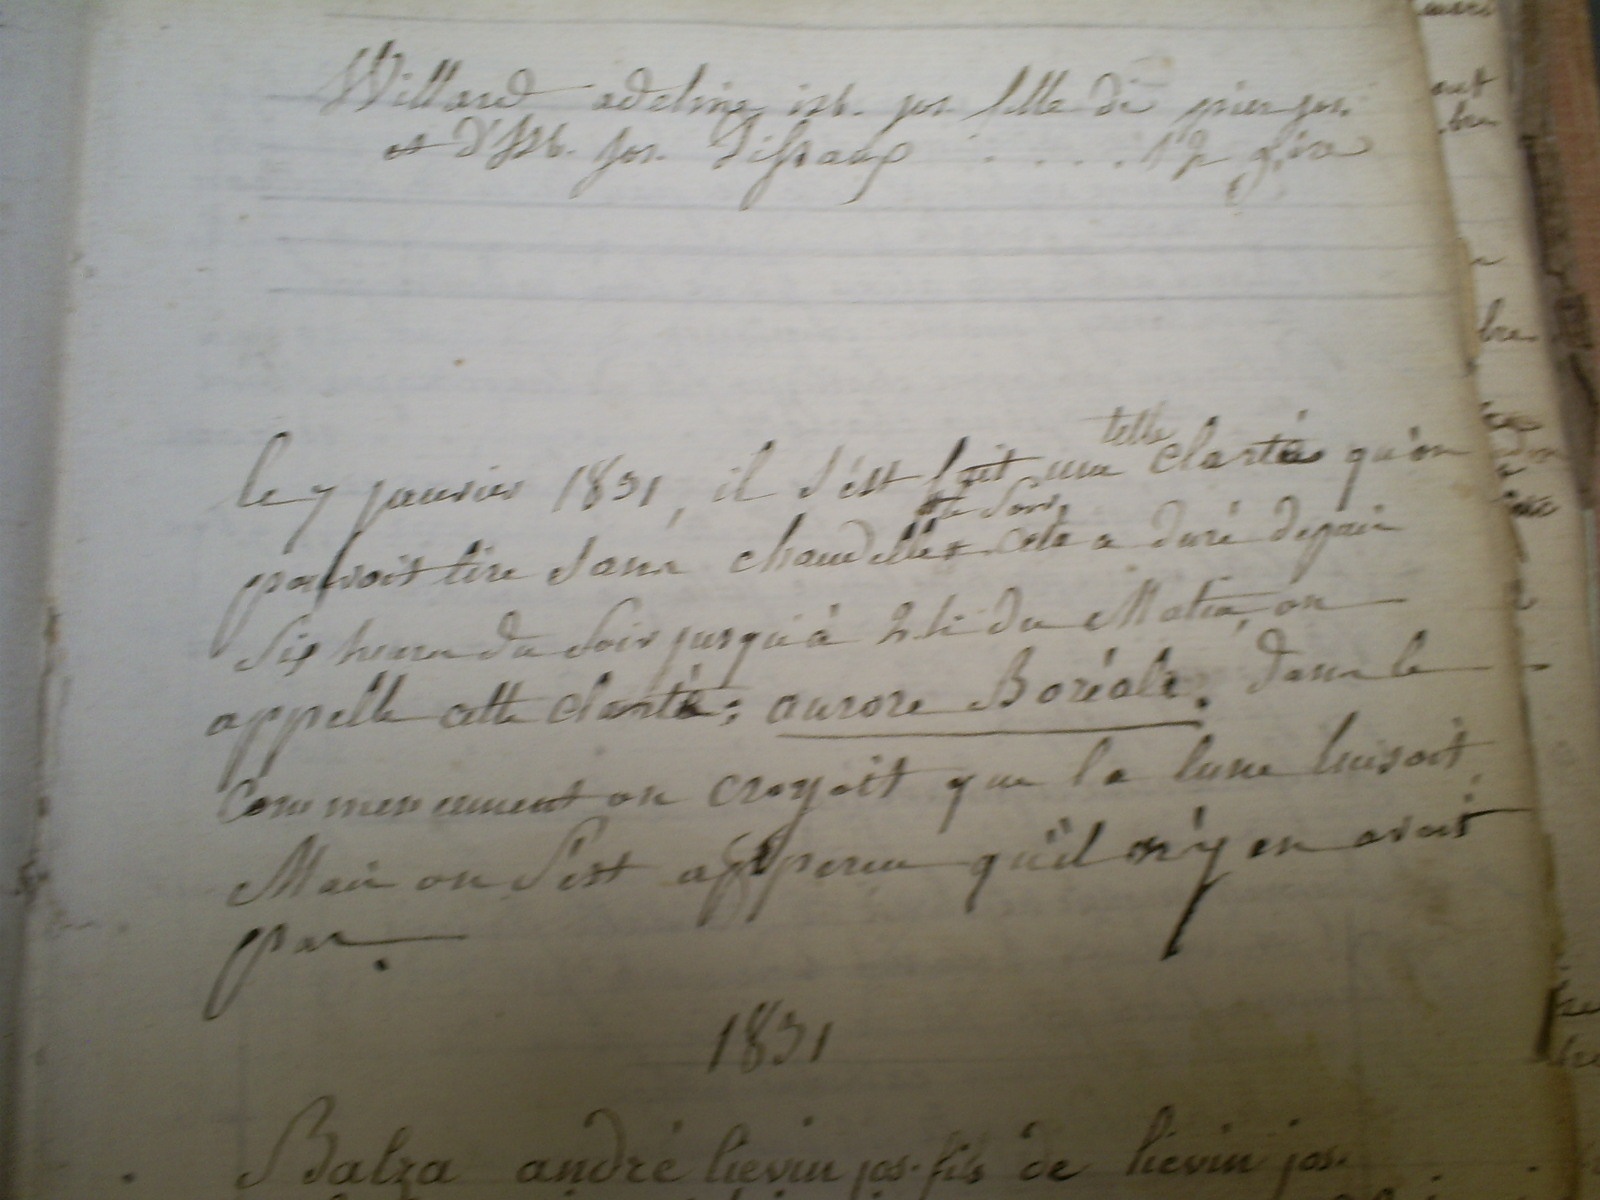 Willard adeline isb. jos. fille de pier jos.
et d'Isb. jos. Dissaux . . . . . 12
telle
le 7 janvier 1831, il s'est fait une clarté qu'on
le soir
pouvoit lire sans chandelles cela a duré depuis
six heures du soir jusqu'à 2 h. du Matin, on
appelle cette clarté; aurore Boréale. Dans le
commencement on croyoit que la lune luisoit,
Mais on s'est apperçu qu'il n'y en avoit
pas.
1831
Balza andré lievin jos. fils de lievin jos.